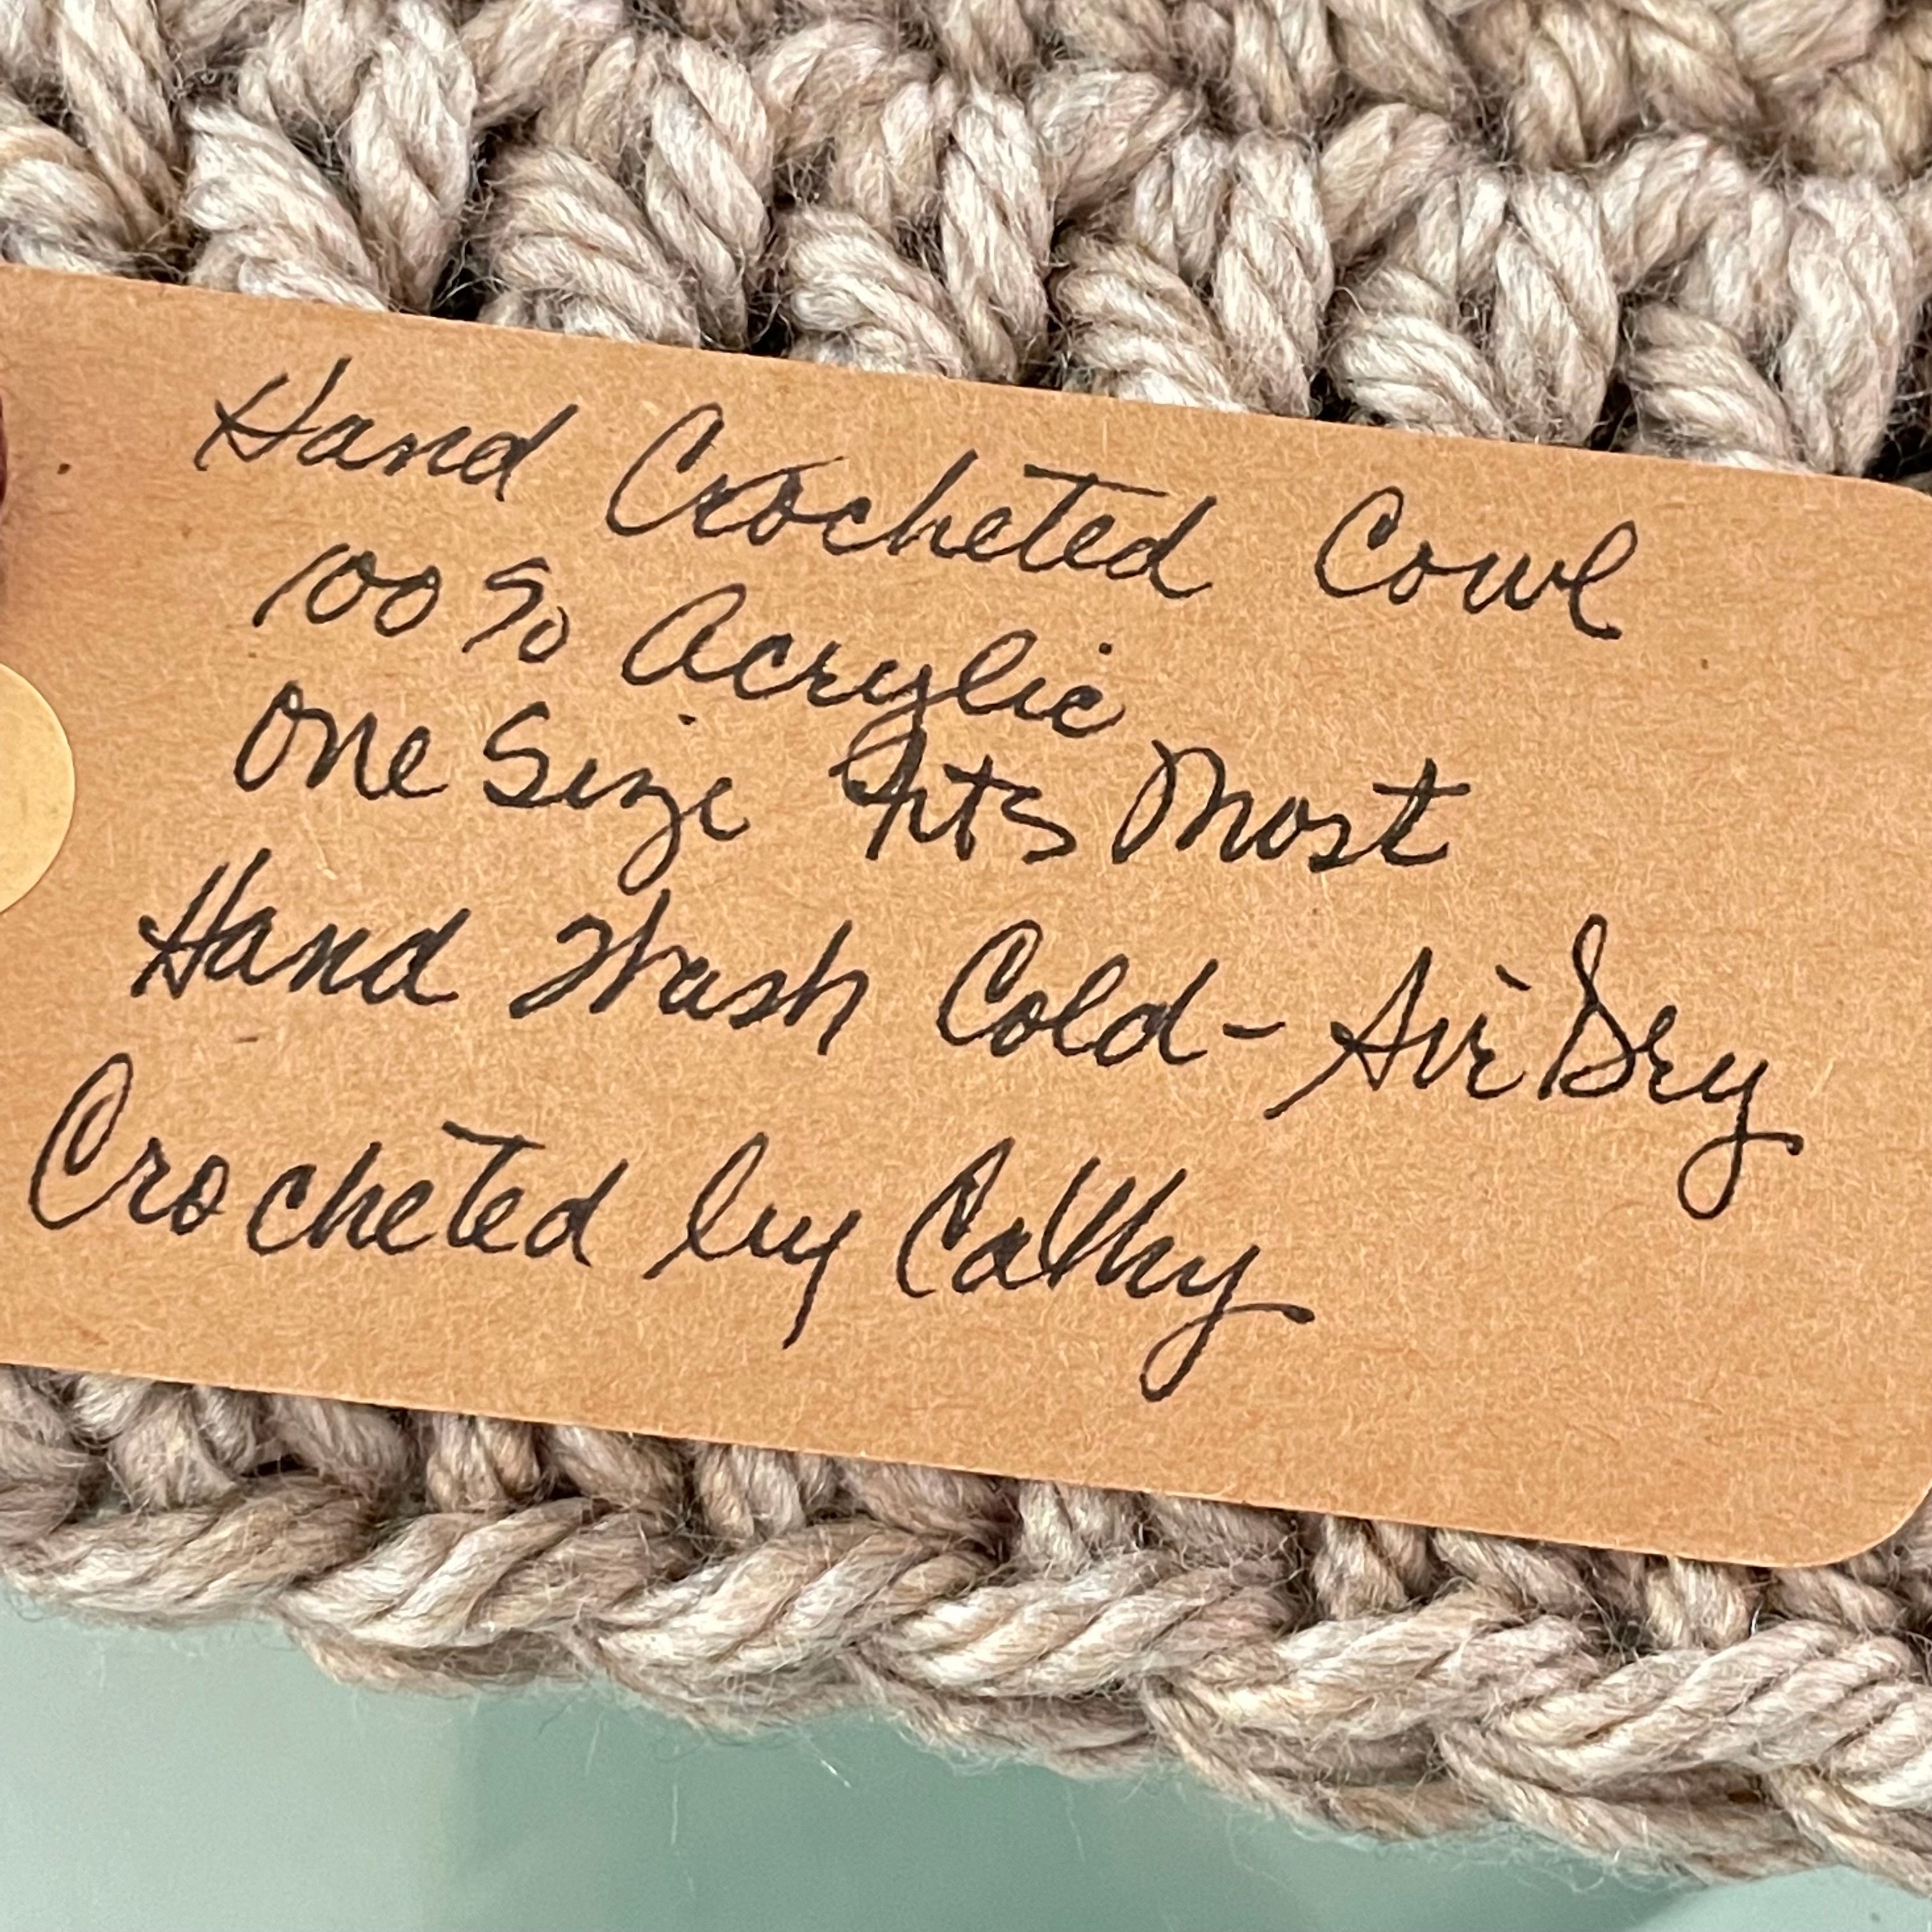 Hand Crocheted Cowl
100% Acrylic
One Size fits Most
Hand Wash Cold - Air Dry
Crocheted by Cathy